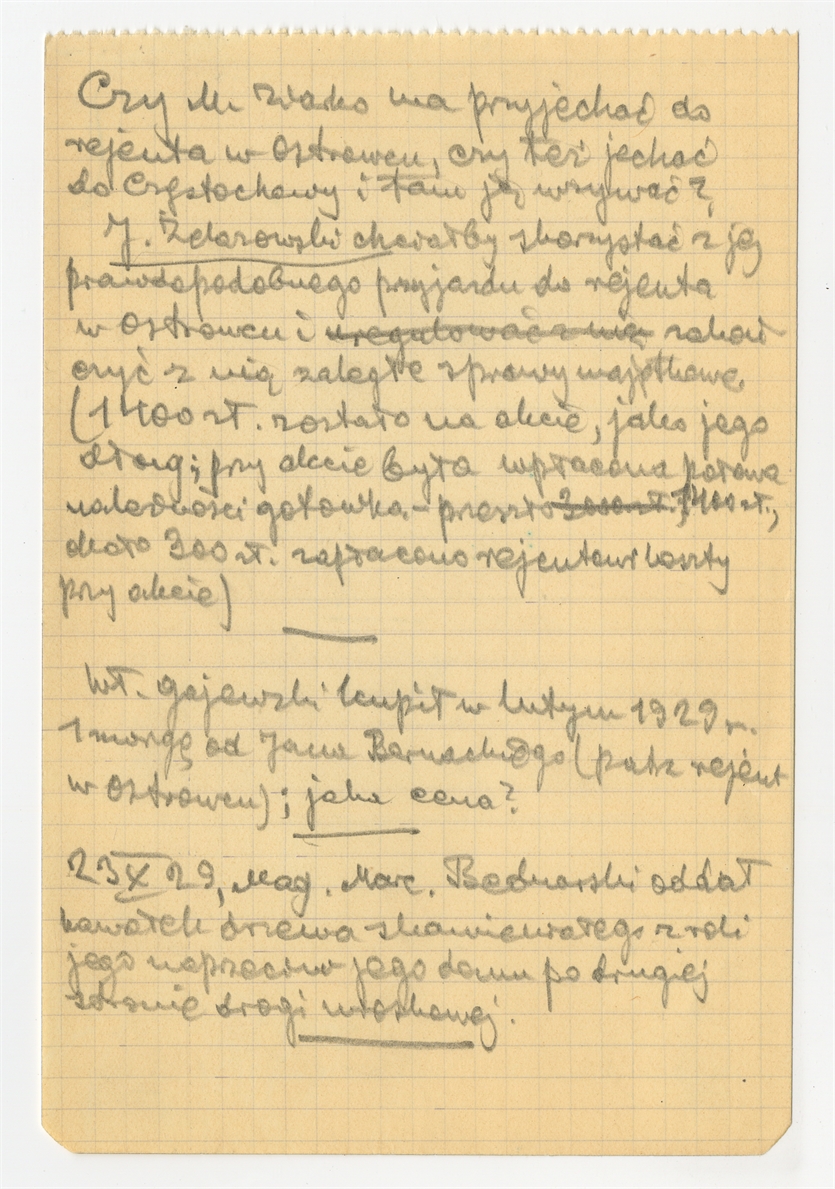 Czy M. Ziarko ma przyjechać do
rejenta w Ostrowcu, czy też jechać
do Częstochowy i tam ją wzywać?
J. Żdarowski chciałby skorzystać z jej
prawdopodobnego przyjazdu do rejenta
w Ostrowcu i uregulować z nią zakoń
czyć z nią zaległe sprawy majątkowe.
(1400 zł. zostało na akcie, jako jego
dług; przy akcie była wpłacona połowa
należności gotówką – przeszło 3000 zł. 1400 zł.,
około 300 zł. zapłacono rejentowi koszty
przy akcie)
Wł. Gajewski kupił w lutym 1929 r.
1 morgę od Jana Bernackiego (patrz rejent
w Ostrowcu); jaka cena?
23 X 29, Mag. Marc. Bednarski oddał
kawałek drzewa skamieniałego z roli
jego naprzeciw jego domu po drugiej
stronie drogi wioskowej.